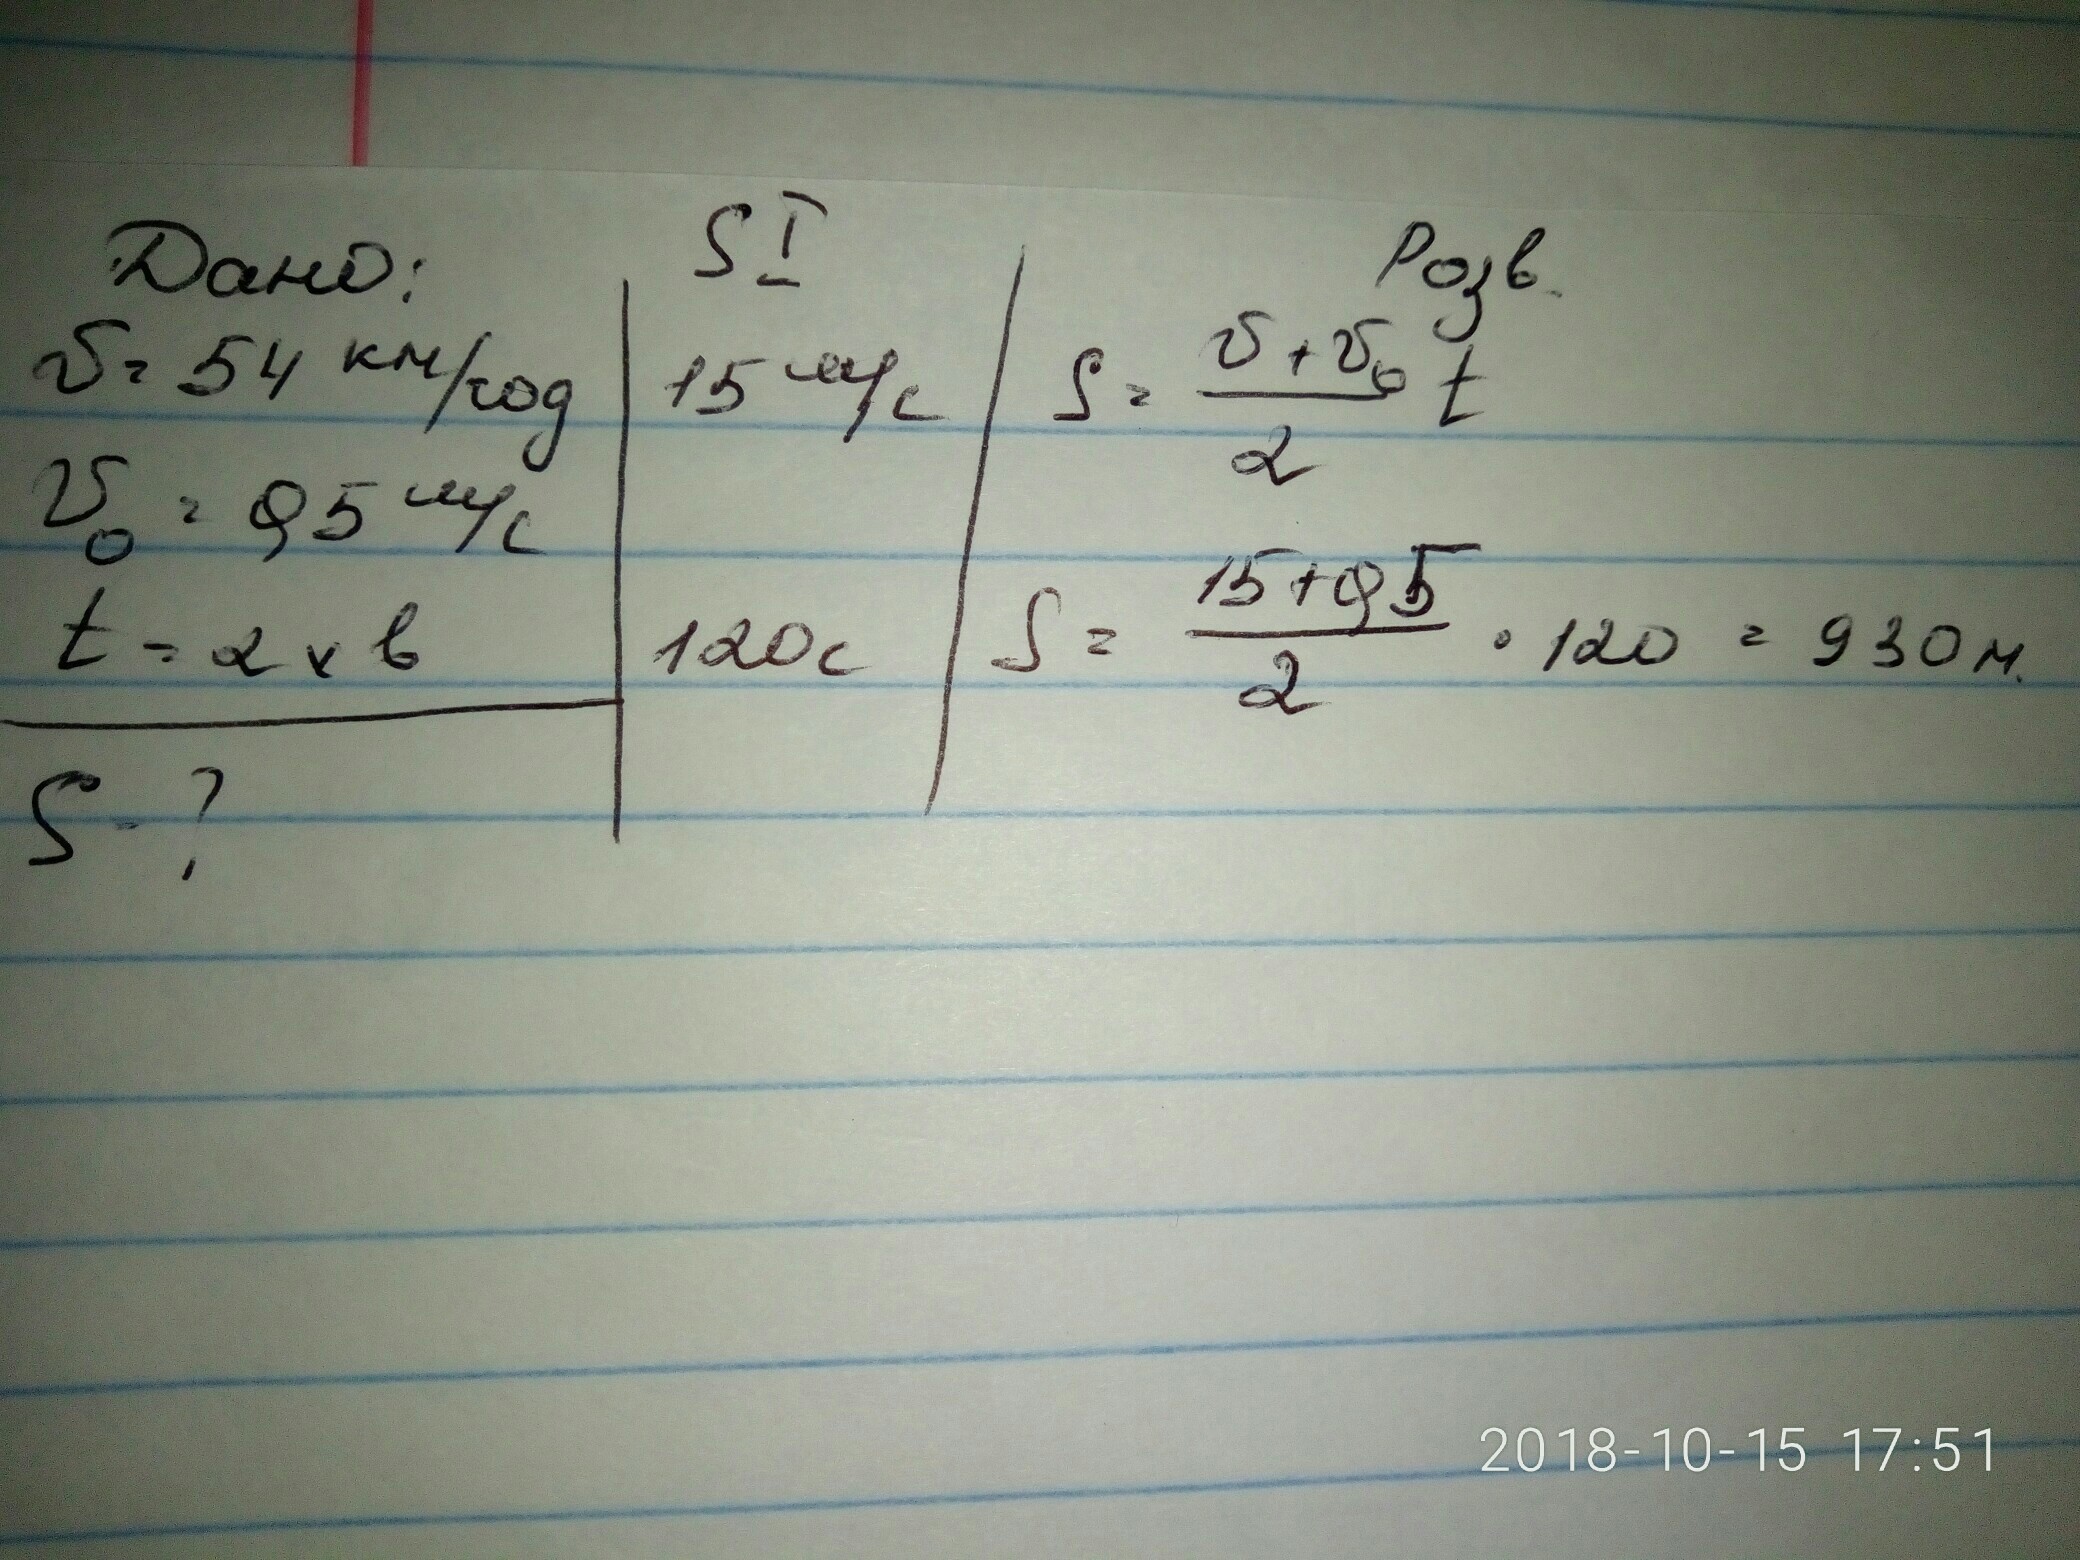 Дано:
v = 54 км/год
v₀ = 0,5 м/с
t = 2 хв
S - ?
SI
15 м/с
120 с
Розв.
S = (v + v₀)/2 t
S = (15 + 0,5)/2 · 120 = 930 м.
2018-10-15 17:51